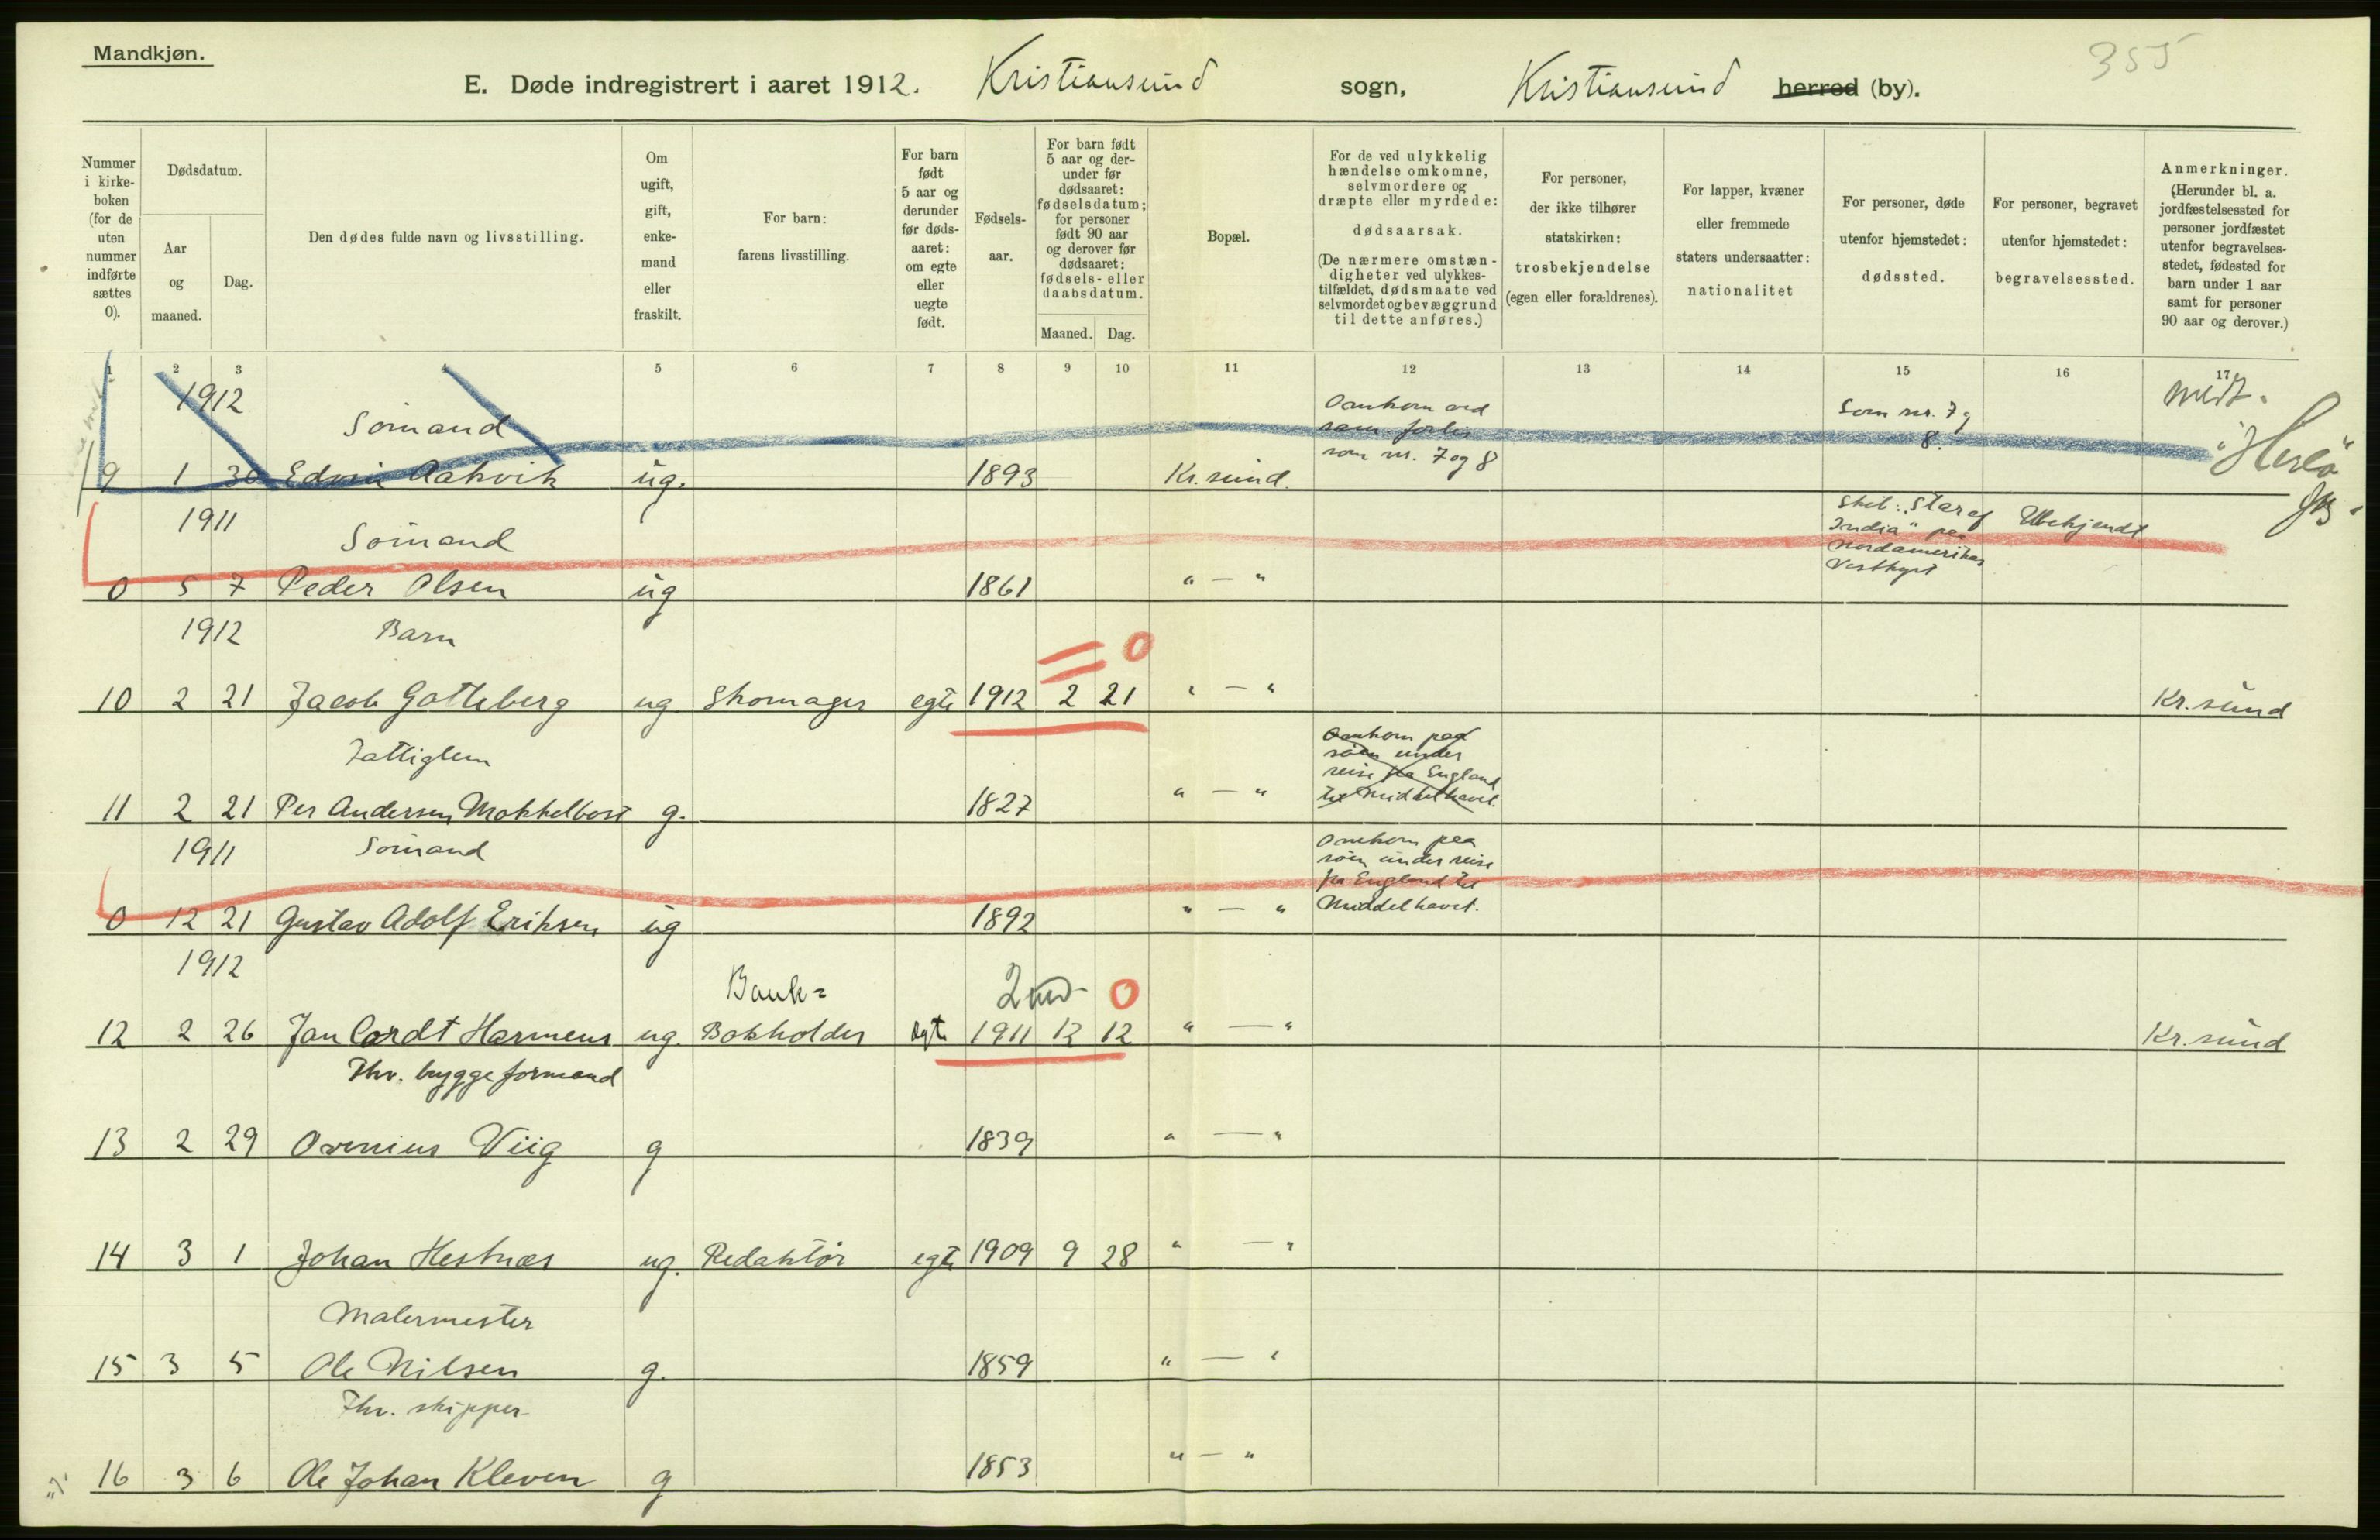 Mandkjøn.
355
E. Døde indregistrert i aaret 1912. Kristiansund sogn, Kristiansund herred (by).
Nummer i kirke-boken (for de uten nummer indførte sættes 0).
Dødsdatum.
Aar og maaned.
Dag.
Den dødes fulde navn og livsstilling.
Om ugift, gift, enke-mand eller fraskilt.
For barn: farens livsstilling.
For barn født 5 aar og derunder før døds-aaret: om egte eller uegte født.
Fødsels-aar.
For barn født 5 aar og der-under før dødsaaret: fødselsdatum; for personer født 90 aar og derover før dødsaaret: fødsels- eller daabsdatum.
Maaned. Dag.
Bopæl.
For de ved ulykkelig hændelse omkomne, selvmordere og dræpte eller myrdede: dødsaarsak. (De nærmere omstæn-digheter ved ulykkes-tilfældet, dødsmaate ved selvmordet og bevæggrund til dette anføres.)
For personer, der ikke tilhører statskirken: trosbekjendelse (egen eller forældrenes).
For lapper, kvæner eller fremmede staters undersaatter: nationalitet
For personer, døde utenfor hjemstedet: dødssted.
For personer, begravet utenfor hjemstedet: begravelsessted.
Anmerkninger. (Herunder bl. a. jordfæstelsessted for personer jordfæstet utenfor begravelses-stedet, fødested for barn under 1 aar samt for personer 90 aar og derover.)
1 2 3 4 5 6 7 8 9 10 11 12 13 14 15 16 17
1912
Sømand
Omkom ved
samme forlis
som nr. 7 og 8
Som nr. 7 og
8.
"Herlø"
9 1 30 Edvin Aakvik ug. 1893 Kr.sund.
1911
Sømand
Skib: "Star of
India" paa
Nordamerikas
Vestkyst
Ubekjendt
0 5 7 Peder Olsen ug 1861 " — "
1912
Barn
0
10 2 21 Jacob Gotteberg ug Skomager egte 1912 2 21 " — " Kr.sund
Fattiglem
Omkom paa
søen under
reise fra England
til Middelhavet.
11 2 21 Per Andersen Mokkelbost g. 1827 " — "
1911
Sømand
Omkom paa
søen under reise
fra England til
Middelhavet.
0 12 21 Gustav Adolf Eriksen ug 1892 " — "
1912
Bank=
2 md. 0
12 2 26 Jan Cordt Harmens ug. Bokholder egte 1911 12 12 " — " Kr.sund
Fhv. bryggeformand
13 2 29 Arnius Viig g 1839 " — "
14 3 1 Johan Hestnæs ug. Redaktør egte 1909 9 28 " — "
Malermester
15 3 5 Ole Nilsen g. 1859 " — "
Fhv. skipper
16 3 6 Ole Johan Kleven g 1853 " — "